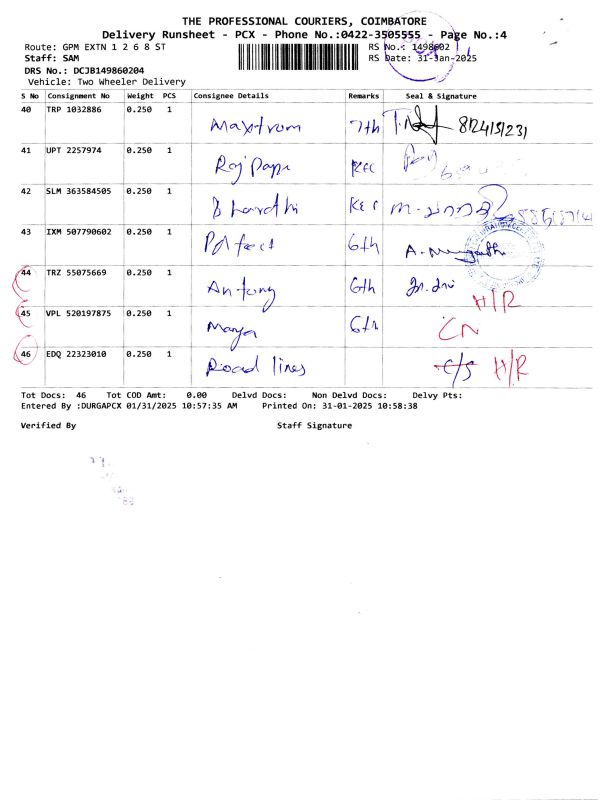 THE PROFESSIONAL COURIERS, COIMBATORE
Delivery Runsheet - PCX - Phone No.:0422-3505555 - Page No.:4
Route: GPM EXTN 1 2 6 8 ST RS No.: 1498602
Staff: SAM RS Date: 31-Jan-2025
DRS No.: DCJB149860204
Vehicle: Two Wheeler Delivery
S No Consignment No Weight PCS Consignee Details Remarks Seal & Signature
40 TRP 1032886 0.250 1 7th
41 UPT 2257974 0.250 1
42 SLM 363584505 0.250 1 Bharathi
43 IXM 507790602 0.250 1 6th
44 TRZ 55075669 0.250 1 Antony 6th H/R
45 VPL 520197875 0.250 1 6th CN
46 EDQ 22323010 0.250 1 Road lines H/R
Tot Docs: 46 Tot COD Amt: 0.00 Delvd Docs: Non Delvd Docs: Delvy Pts:
Entered By :DURGAPCX 01/31/2025 10:57:35 AM Printed On: 31-01-2025 10:58:38
Verified By Staff Signature